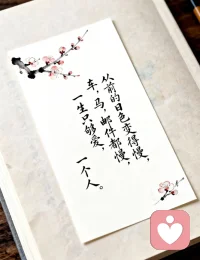 从前的日色变得慢，
车，马，邮件都慢，
一生只够爱，
一个人。